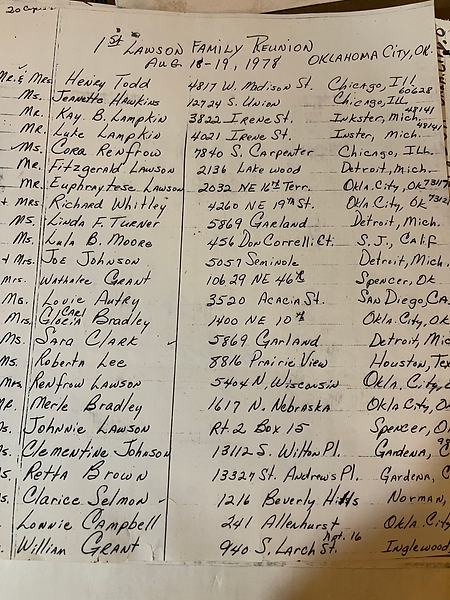 20 Copies
1st LAWSON FAMILY REUNION
AUG 18-19, 1978 OKLAHOMA CITY, OK.
Mr. & Mrs Henry Todd 4817 W. Madison St. Chicago, Ill 60628
Ms. Jeanette Hawkins 12724 S. Union Chicago, Ill
Mr. Kay B. Lampkin 3822 Irene St. Inkster, Mich. 48141
Mr. Lute Lampkin 4021 Irene St. Inster, Mich. 48141
Ms. Cora Renfrow 7840 S. Carpenter Chicago, Ill.
Mr. Fitzgerald Lawson 2136 Lakewood Detroit, Mich.
Mr. Euphraytese Lawson 2032 NE 16th Terr. Okla. City, OK 7311
+ Mrs Richard Whitley 4260 NE 19th St. Okla City, OK 7312
Ms. Linda F. Turner 5869 Garland Detroit, Mich.
Ms. Lula B. Moore 456 Don Correlli Ct. S. J., Calif
+ Mrs. Joe Johnson 5057 Seminole Detroit, Mich.
Mrs. Wathalee Grant 10629 NE 46th Spencer, Ok
Ms. Louie Autry 3520 Acacia St. San Diego, CA.
Mrs. Gloria Bradley 1400 NE 10th Okla. City, OK
Ms. Sara Clark 5869 Garland Detroit, Mic
Ms. Roberta Lee 8816 Prairie View Houston, Tex
Mrs Renfrow Lawson 5404 N. Wisconsin Okla. City, O
Mr. Merle Bradley 1617 N. Nebraska Okla City, O
s. Johnnie Lawson Rt. 2 Box 15 Spencer, O
s. Clementine Johnson 13112 S. Wilton Pl. Gardena, C
s. Retta Brown 13327 St. Andrews Pl. Gardena, C
s. Clarice Selmon 1216 Beverly Hills Norman,
. Lonnie Campbell 241 Allenhurst Okla. City
. William Grant 940 S. Larch St. Apt. 16 Inglewood